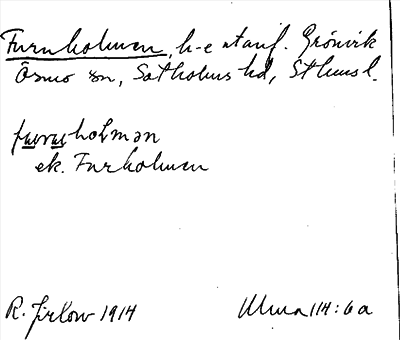 Furuholmen, h-e utanf. Grönvik
Ösmo sn, Sotholms hd, Sthms l.
furuholmən
ek. Furholmen
R. Jirlow 1914 Ulma 114:6a